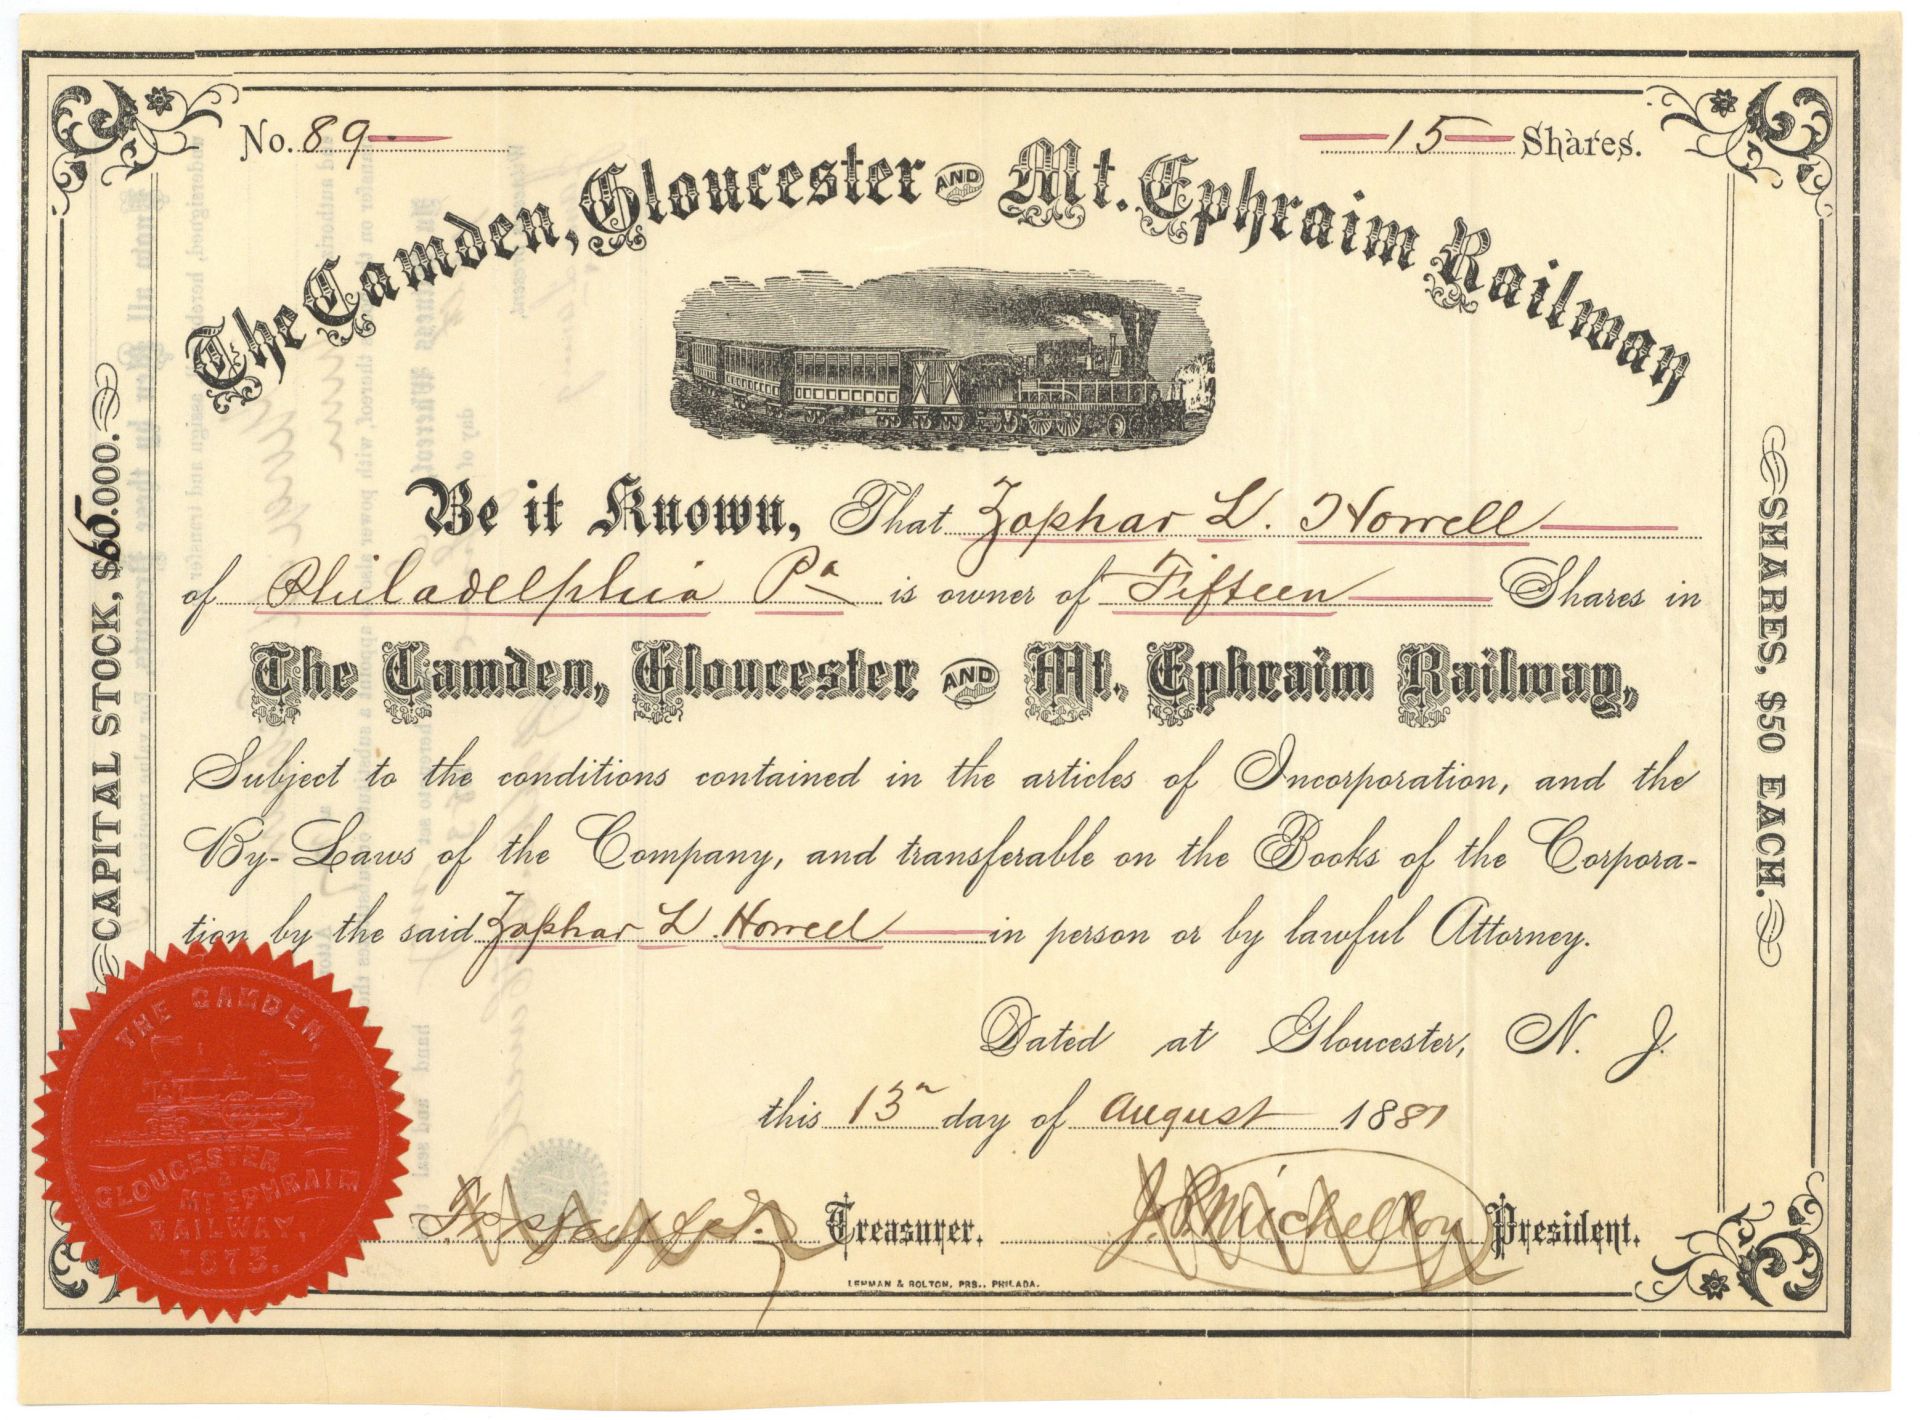 No. 89
15 Shares.
The Camden, Gloucester AND Mt. Ephraim Railway
Be it Known, That Zophar L. Howell
of Philadelphia Pa is owner of Fifteen Shares in
The Camden, Gloucester AND Mt. Ephraim Railway,
Subject to the conditions contained in the articles of Incorporation, and the
By-Laws of the Company, and transferable on the Books of the Corpora-
tion by the said Zophar L. Howell in person or by lawful Attorney.
Dated at Gloucester, N. J.
this 13 day of August 1881
Treasurer.
President.
LEHMAN & BOLTON, PRS., PHILADA.
CAPITAL STOCK, $
SHARES, $50 EACH.
THE CAMDEN
GLOUCESTER
&
MT EPHRAIM
RAILWAY,
1873.